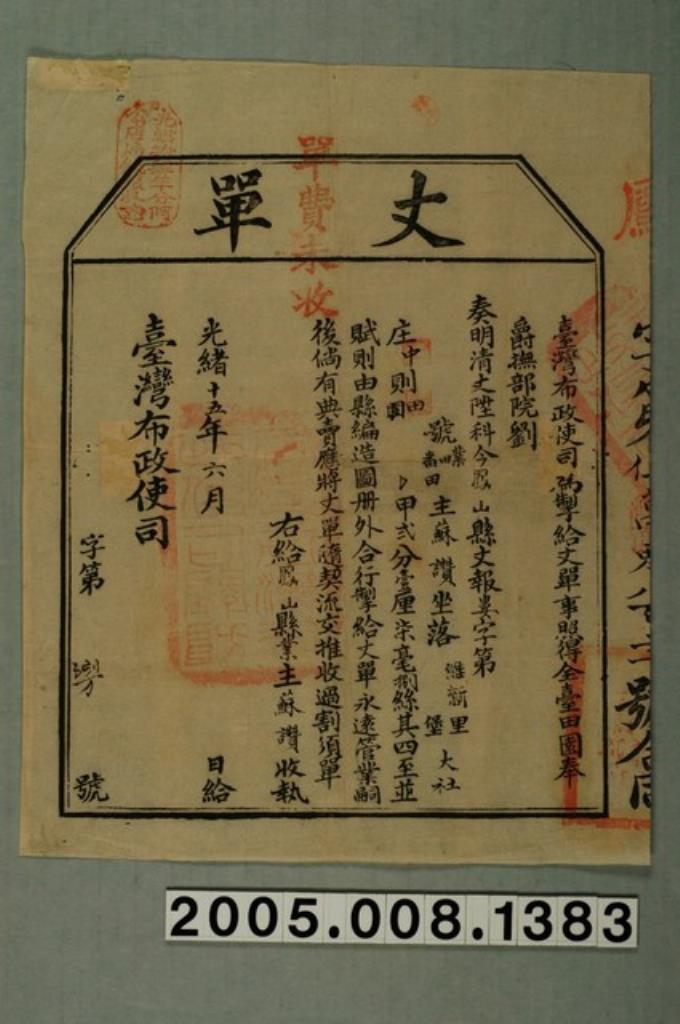 丈單
單費未收
臺灣布政使司為掣給丈單事照得全臺田園奉
爵撫部院劉
奏明清丈陞科今鳳山縣丈報婁字第
號業主蘇讚坐落維新里堡大社
庄中則田園甲弍分壹厘柒毫捌絲其四至並
賦則由縣編造圖册外合行掣給丈單永遠管業嗣
後倘有典賣應將丈單隨契流交推收過割須單
右給鳳山縣業主蘇讚收執
光緒十五年六月日給
臺灣布政使司
字第號
2005.008.1383